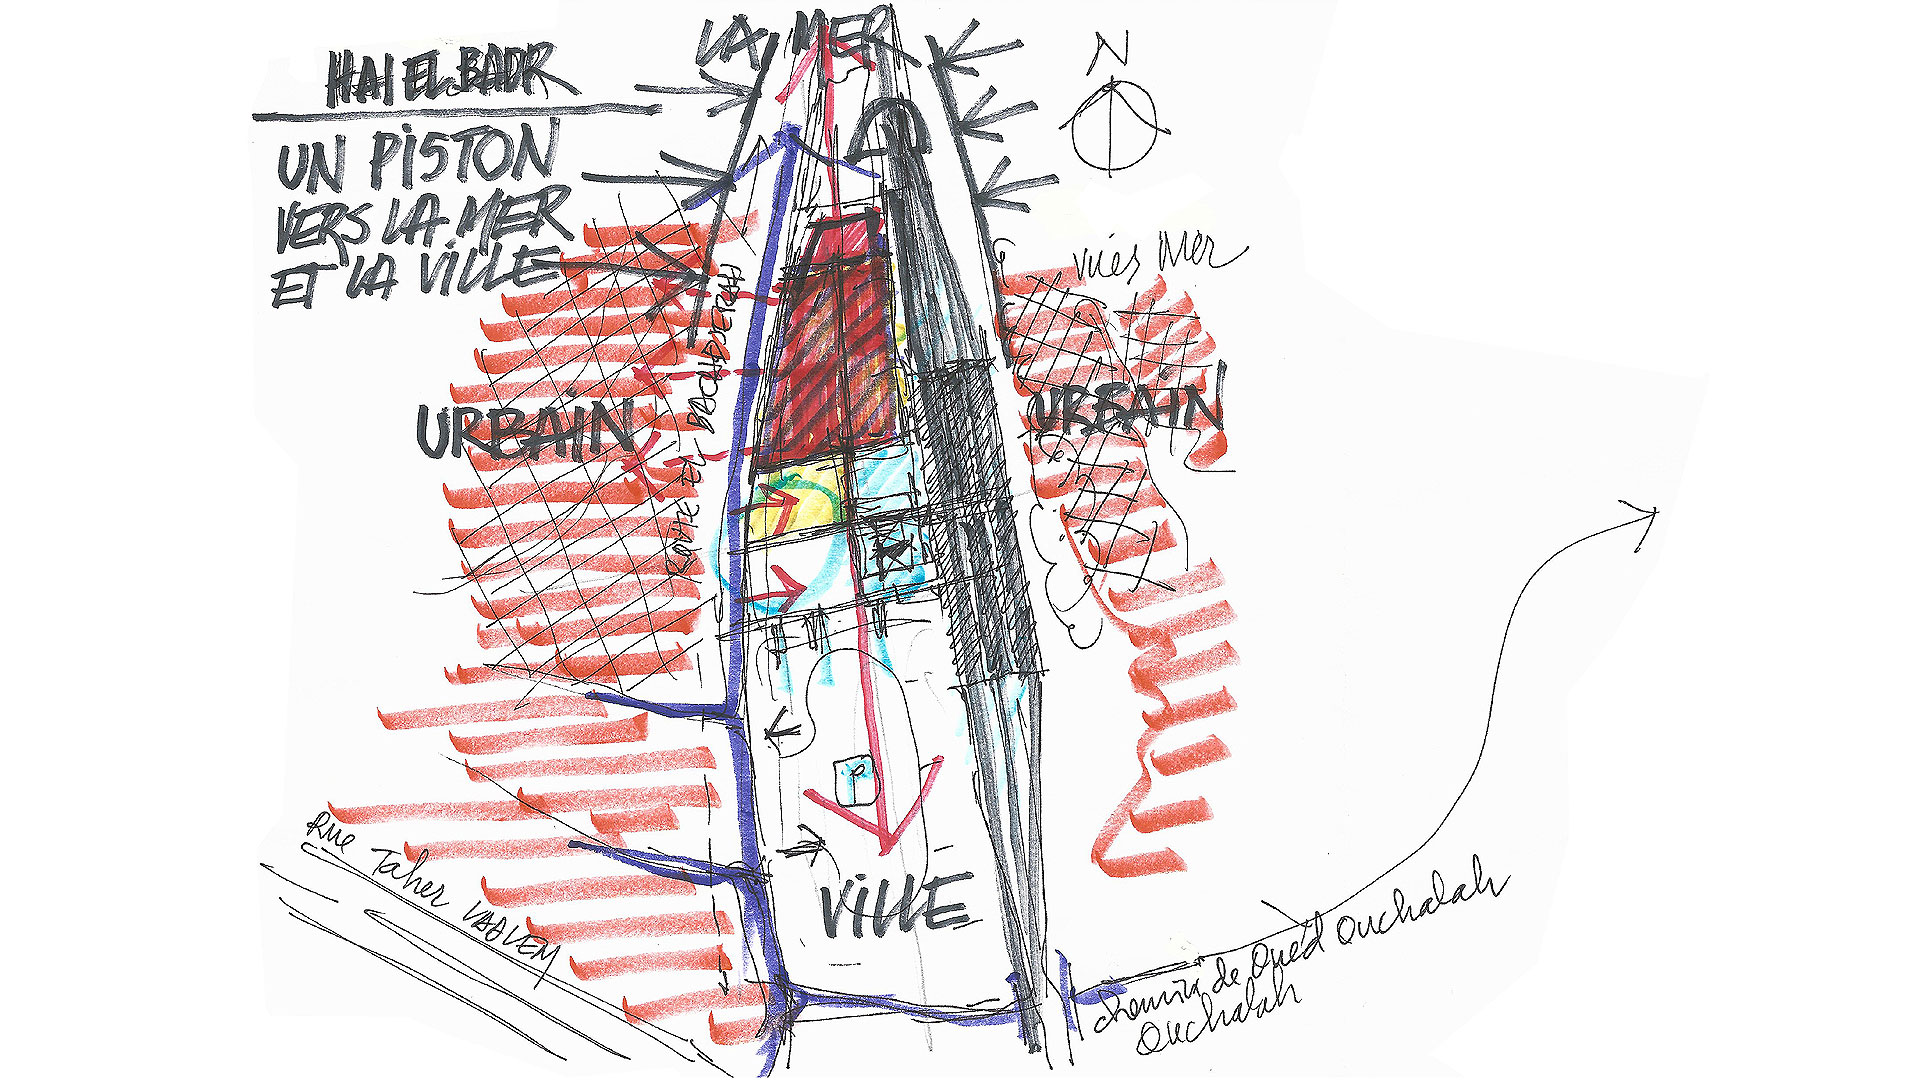 HAI EL BADR
UN PISTON
VERS LA MER
ET LA VILLE
LA MER
N
vues mer
URBAIN
URBAIN
ROUTE EL
P
VILLE
Rue Taher
chemin de Oued Ouchalah
Ouchalah